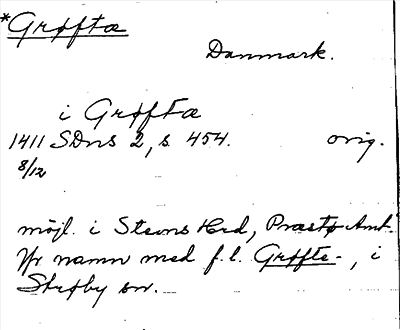 *Grøftæ
Danmark.
i Grøftæ
1411 SDns 2, s. 454. orig.
8/12
möjl. i Stevns Hrd, Præstø Amt.
Jfr namn med f.l. Grøfte-, i
Skrøby sn.